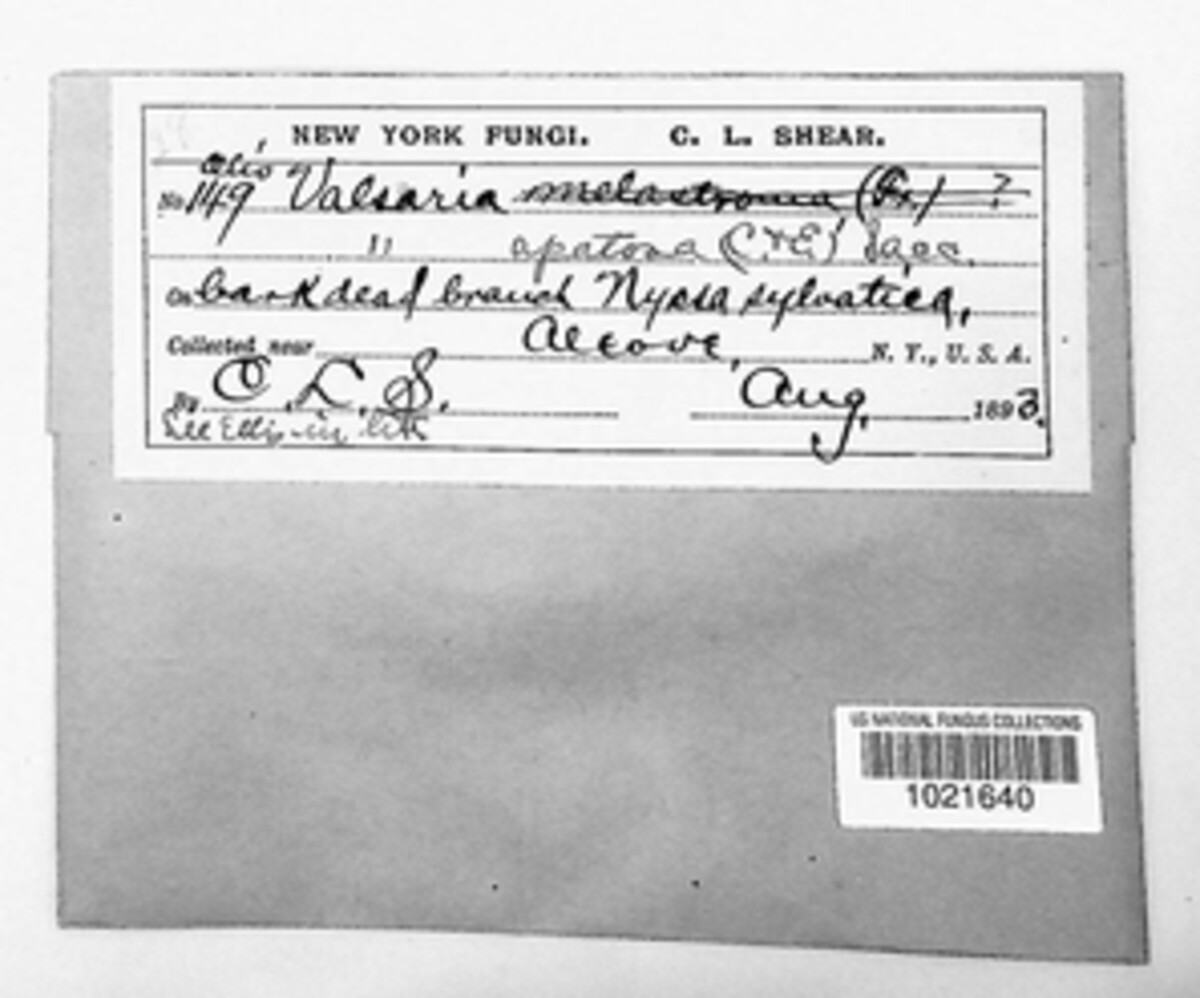 NEW YORK FUNGI. C. L. SHEAR.
No. 149 Valsaria melastroma (Fr.) ?
" apatona (C.&E.) Sacc.
On bark dead branch Nyssa sylvatica,
Collected near Alcove, N. Y., U. S. A.
By C. L. S. Aug. 1893.
See Ellis in litt
US NATIONAL FUNGUS COLLECTIONS
1021640